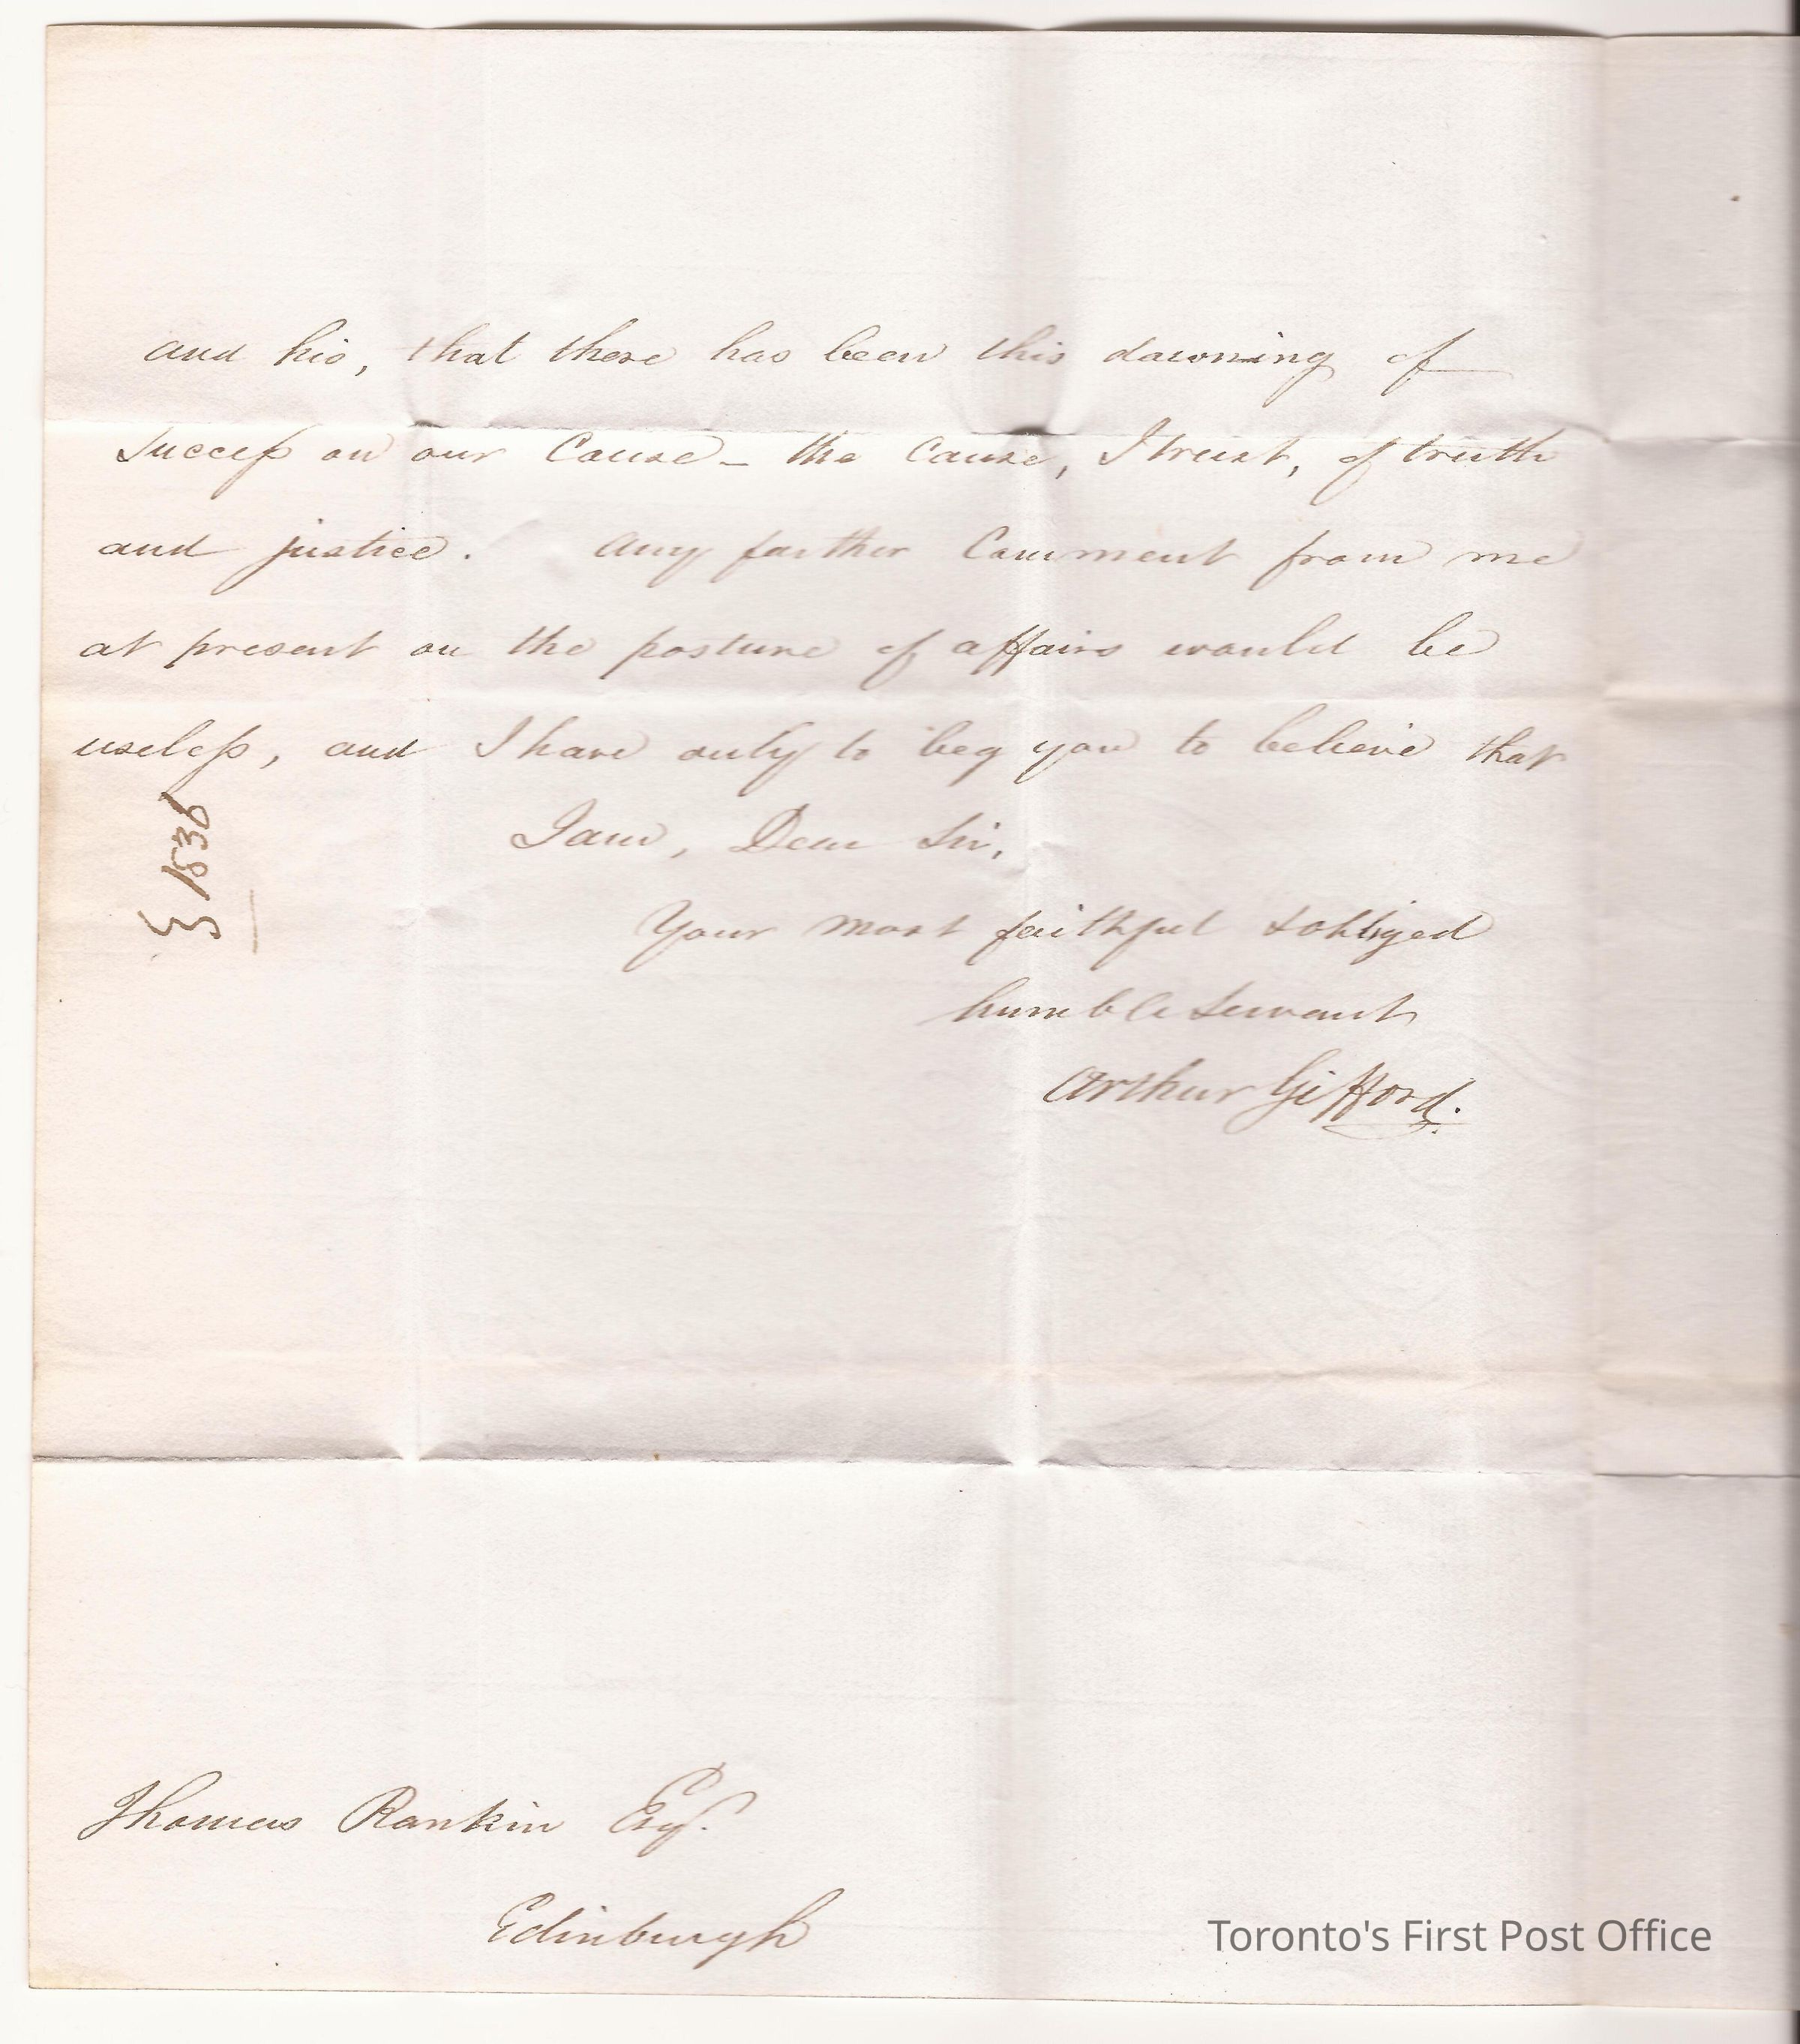 and his, that there has been this dawning of
success on our Cause - the Cause, I trust, of truth
and justice. Any farther Comment from me
at present on the posture of affairs would be
useless, and I have only to beg you to believe that
I am, Dear Sir,
Your most faithful & obliged
humble Servant
Arthur Gifford.
1836
Thomas Rankin Esqr.
Edinburgh
Toronto's First Post Office